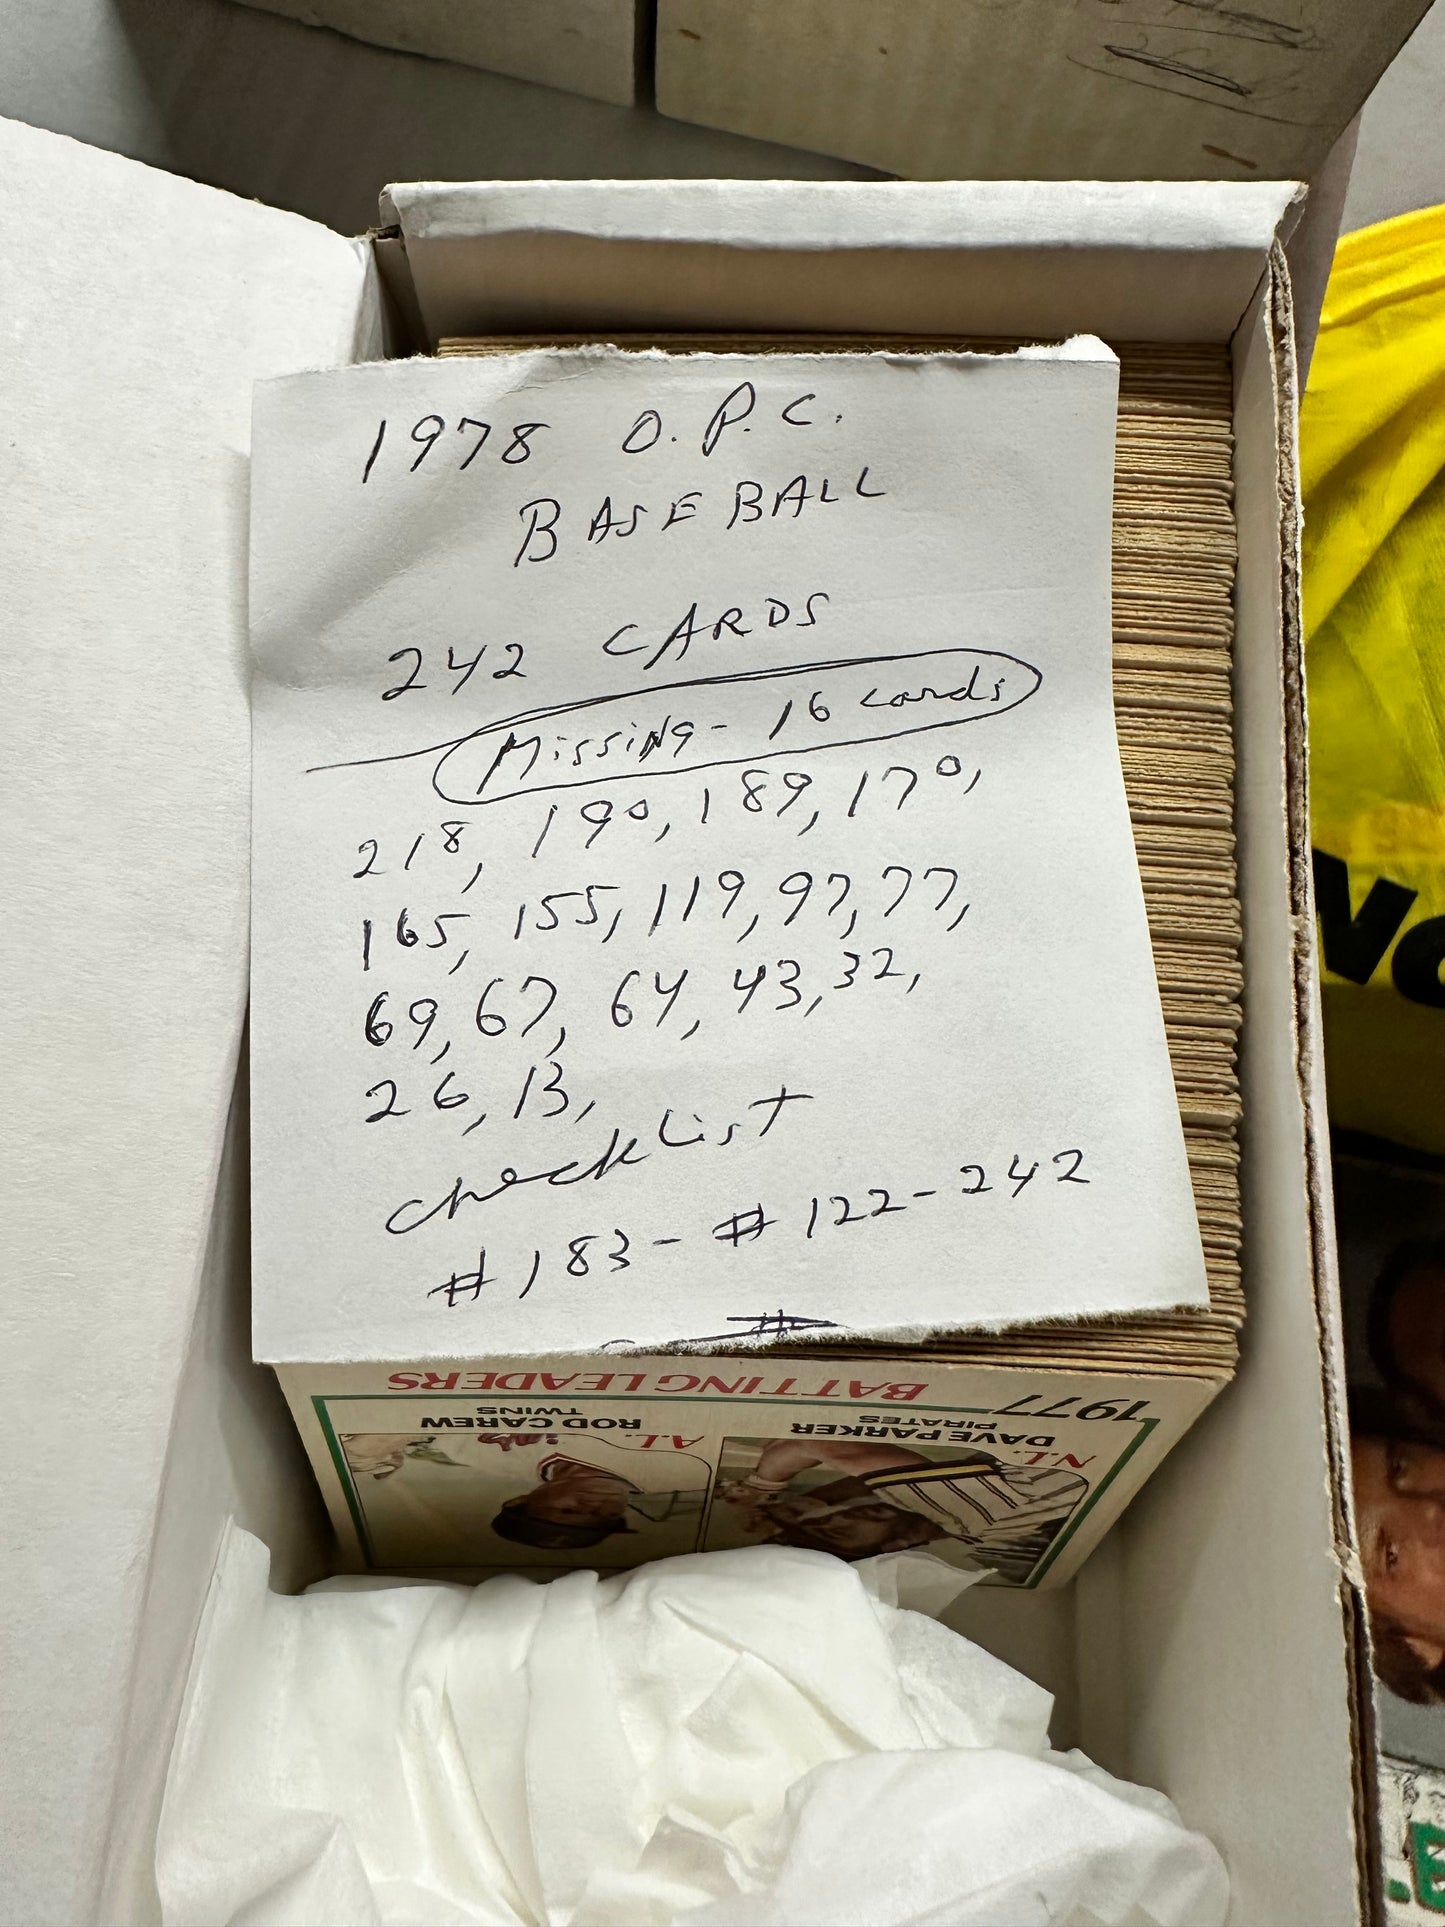 1978 O.P.C.
BASEBALL
242 CARDS
Missing - 16 cards
218, 190, 189, 170,
165, 155, 119, 97, 77,
69, 67, 64, 43, 32,
26, 13,
checkList
# 183 - # 122 - 242
#
1977
BATTING LEADERS
N.L.
DAVE PARKER
PIRATES
A.L.
ROD CAREW
TWINS